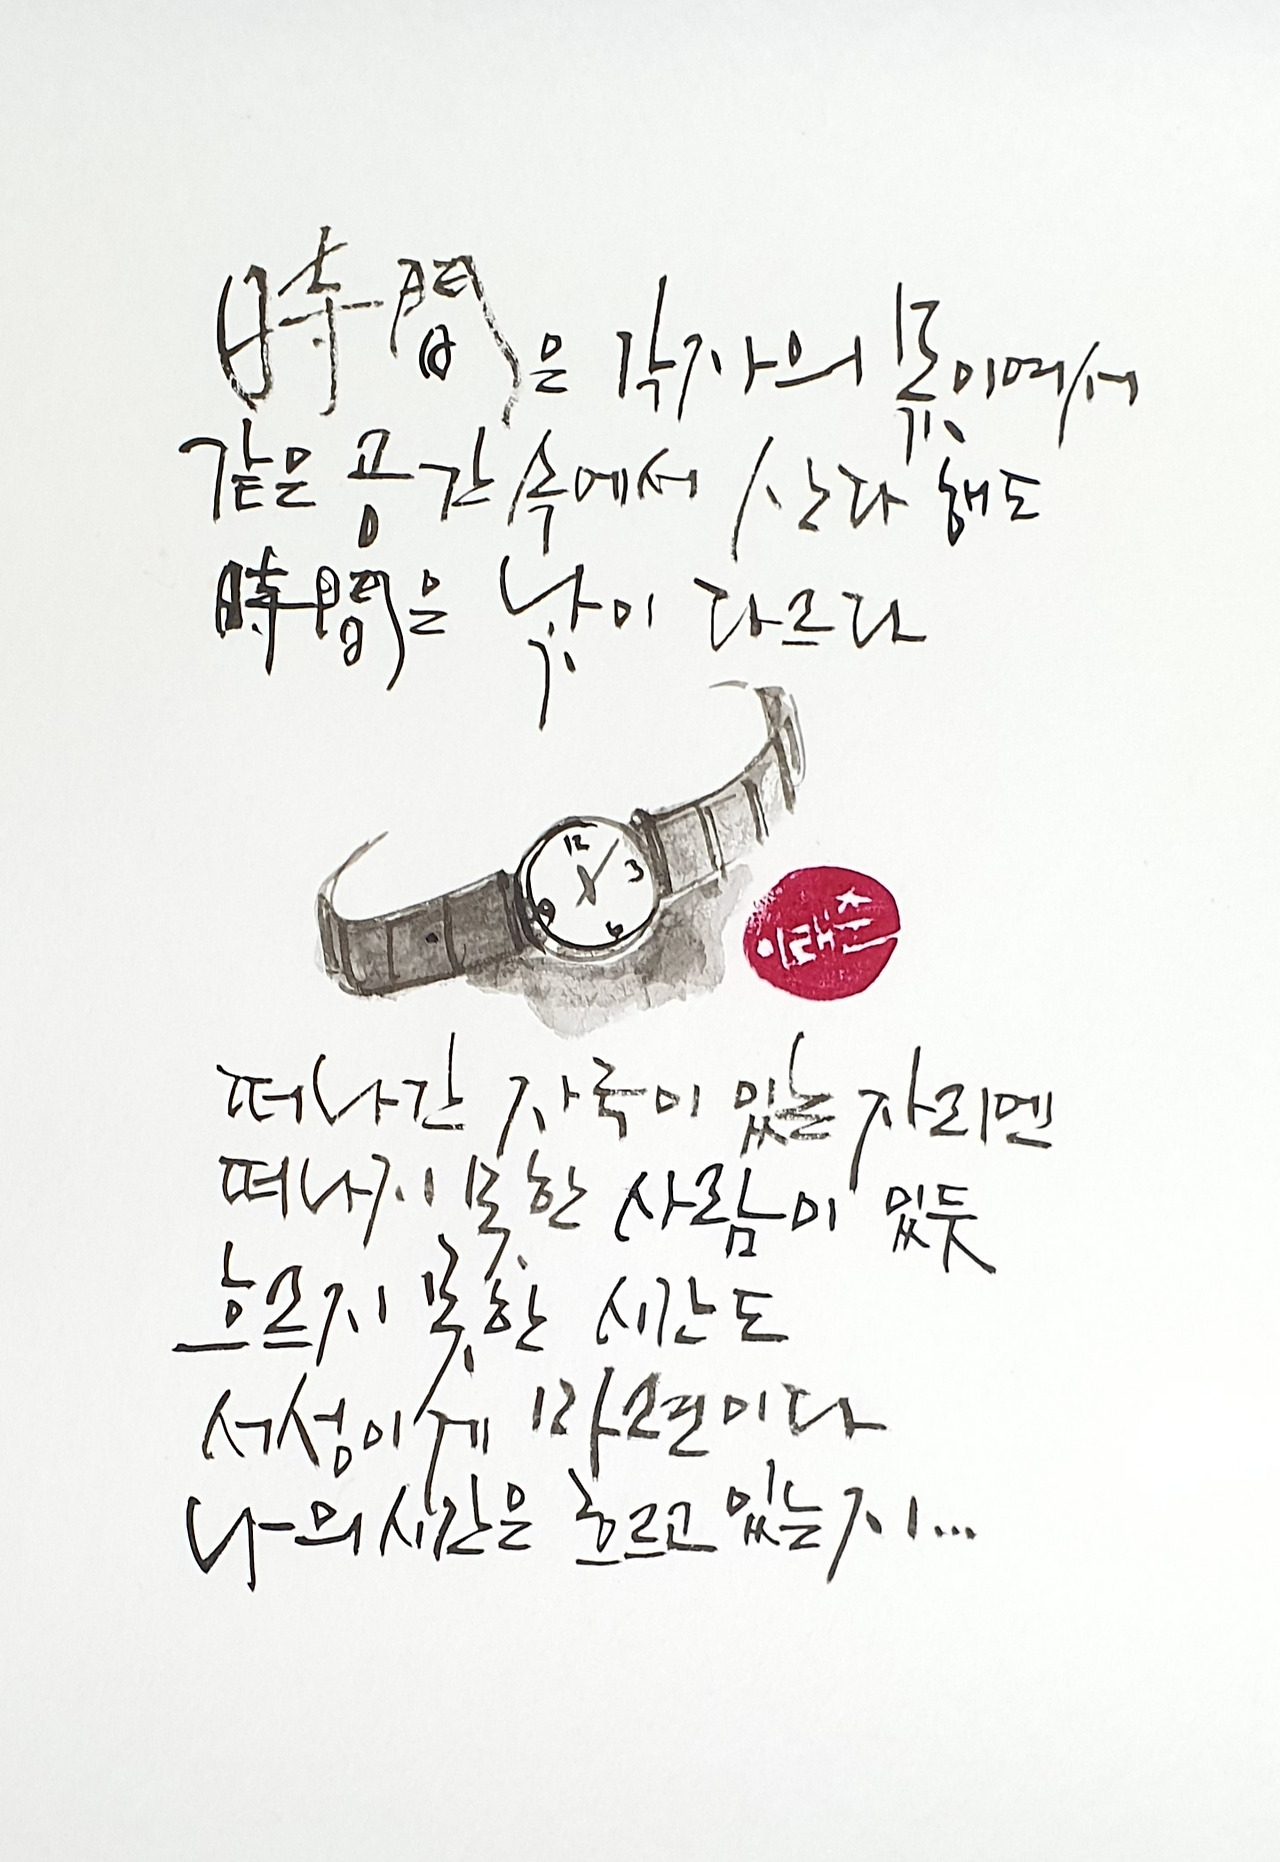 時間은 각자의 몫이여서
같은 공간 속에서 산다 해도
時間은 낯이 다르다
12
3
6
9
이래춘
떠나간 자국이 있는 자리엔
떠나지 못한 사람이 있듯
흐르지 못한 시간도
서성이게 마련이다
나의 시간은 흐르고 있는지...